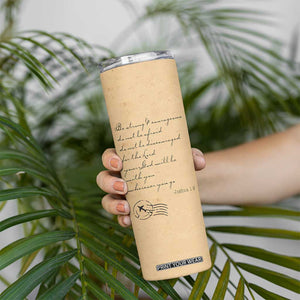 Be strong & courageous
do not be afraid
do not be discouraged
for the Lord
your God will be
with you
wherever you go
Joshua 1:9
PRINT YOUR WEAR